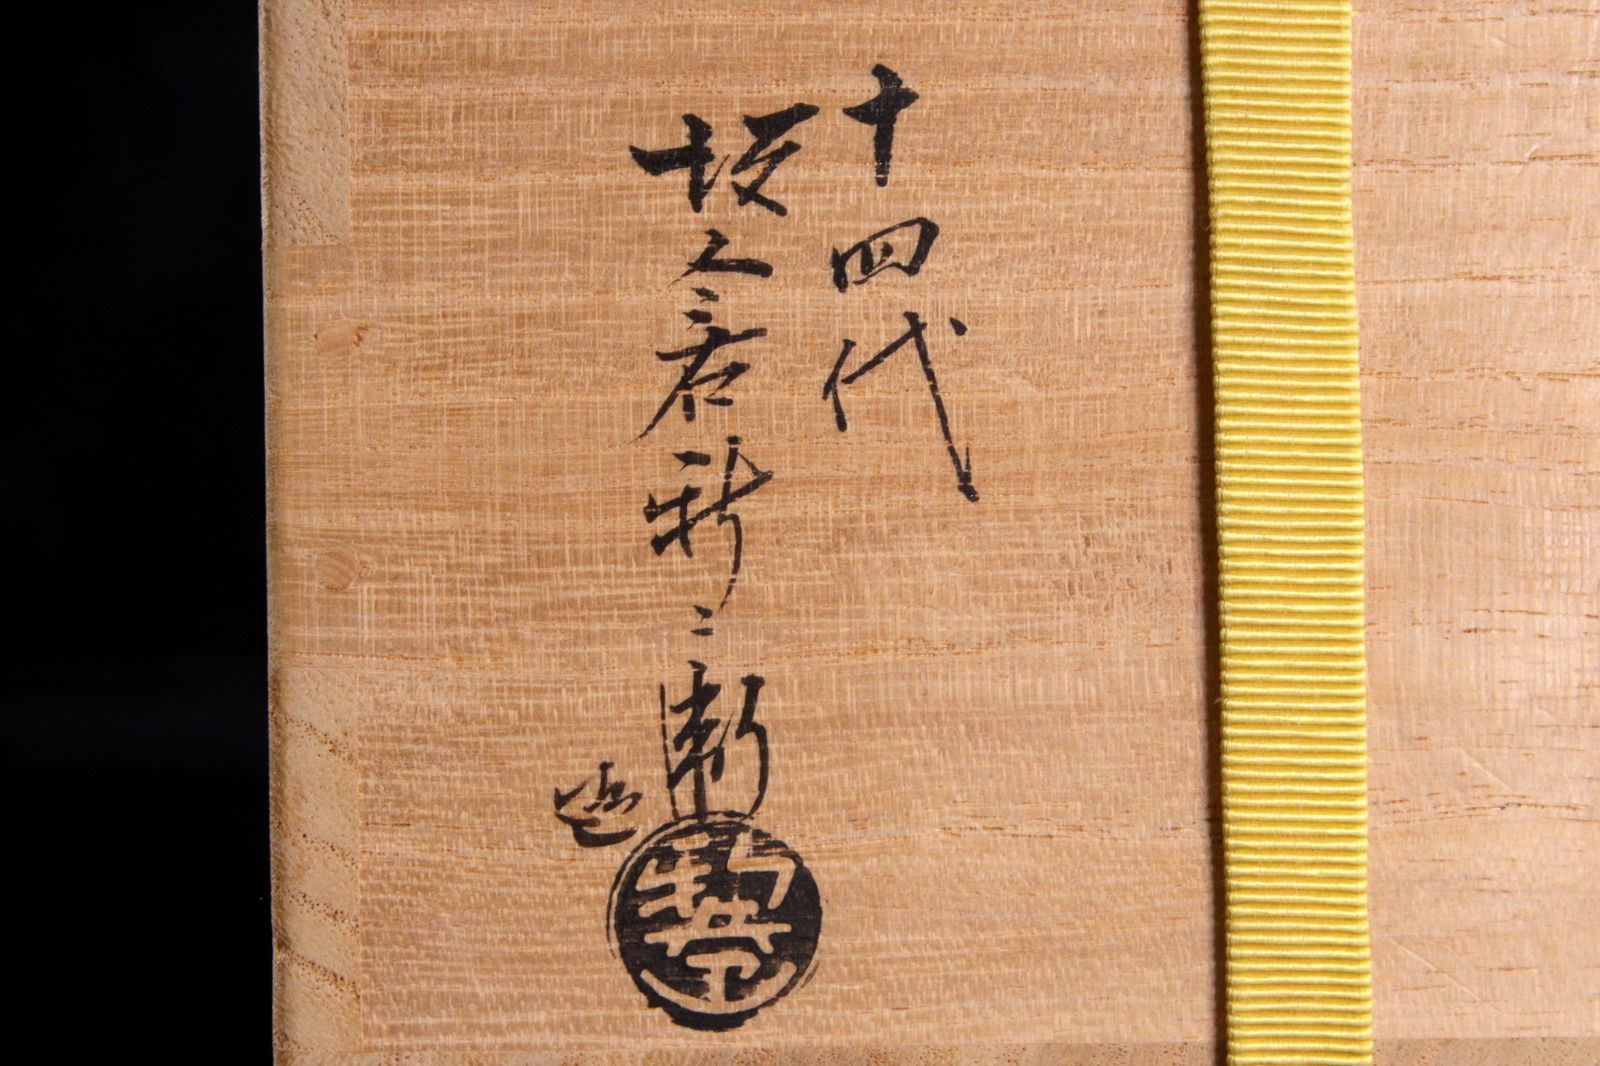 十四代
坂倉新兵衛
造